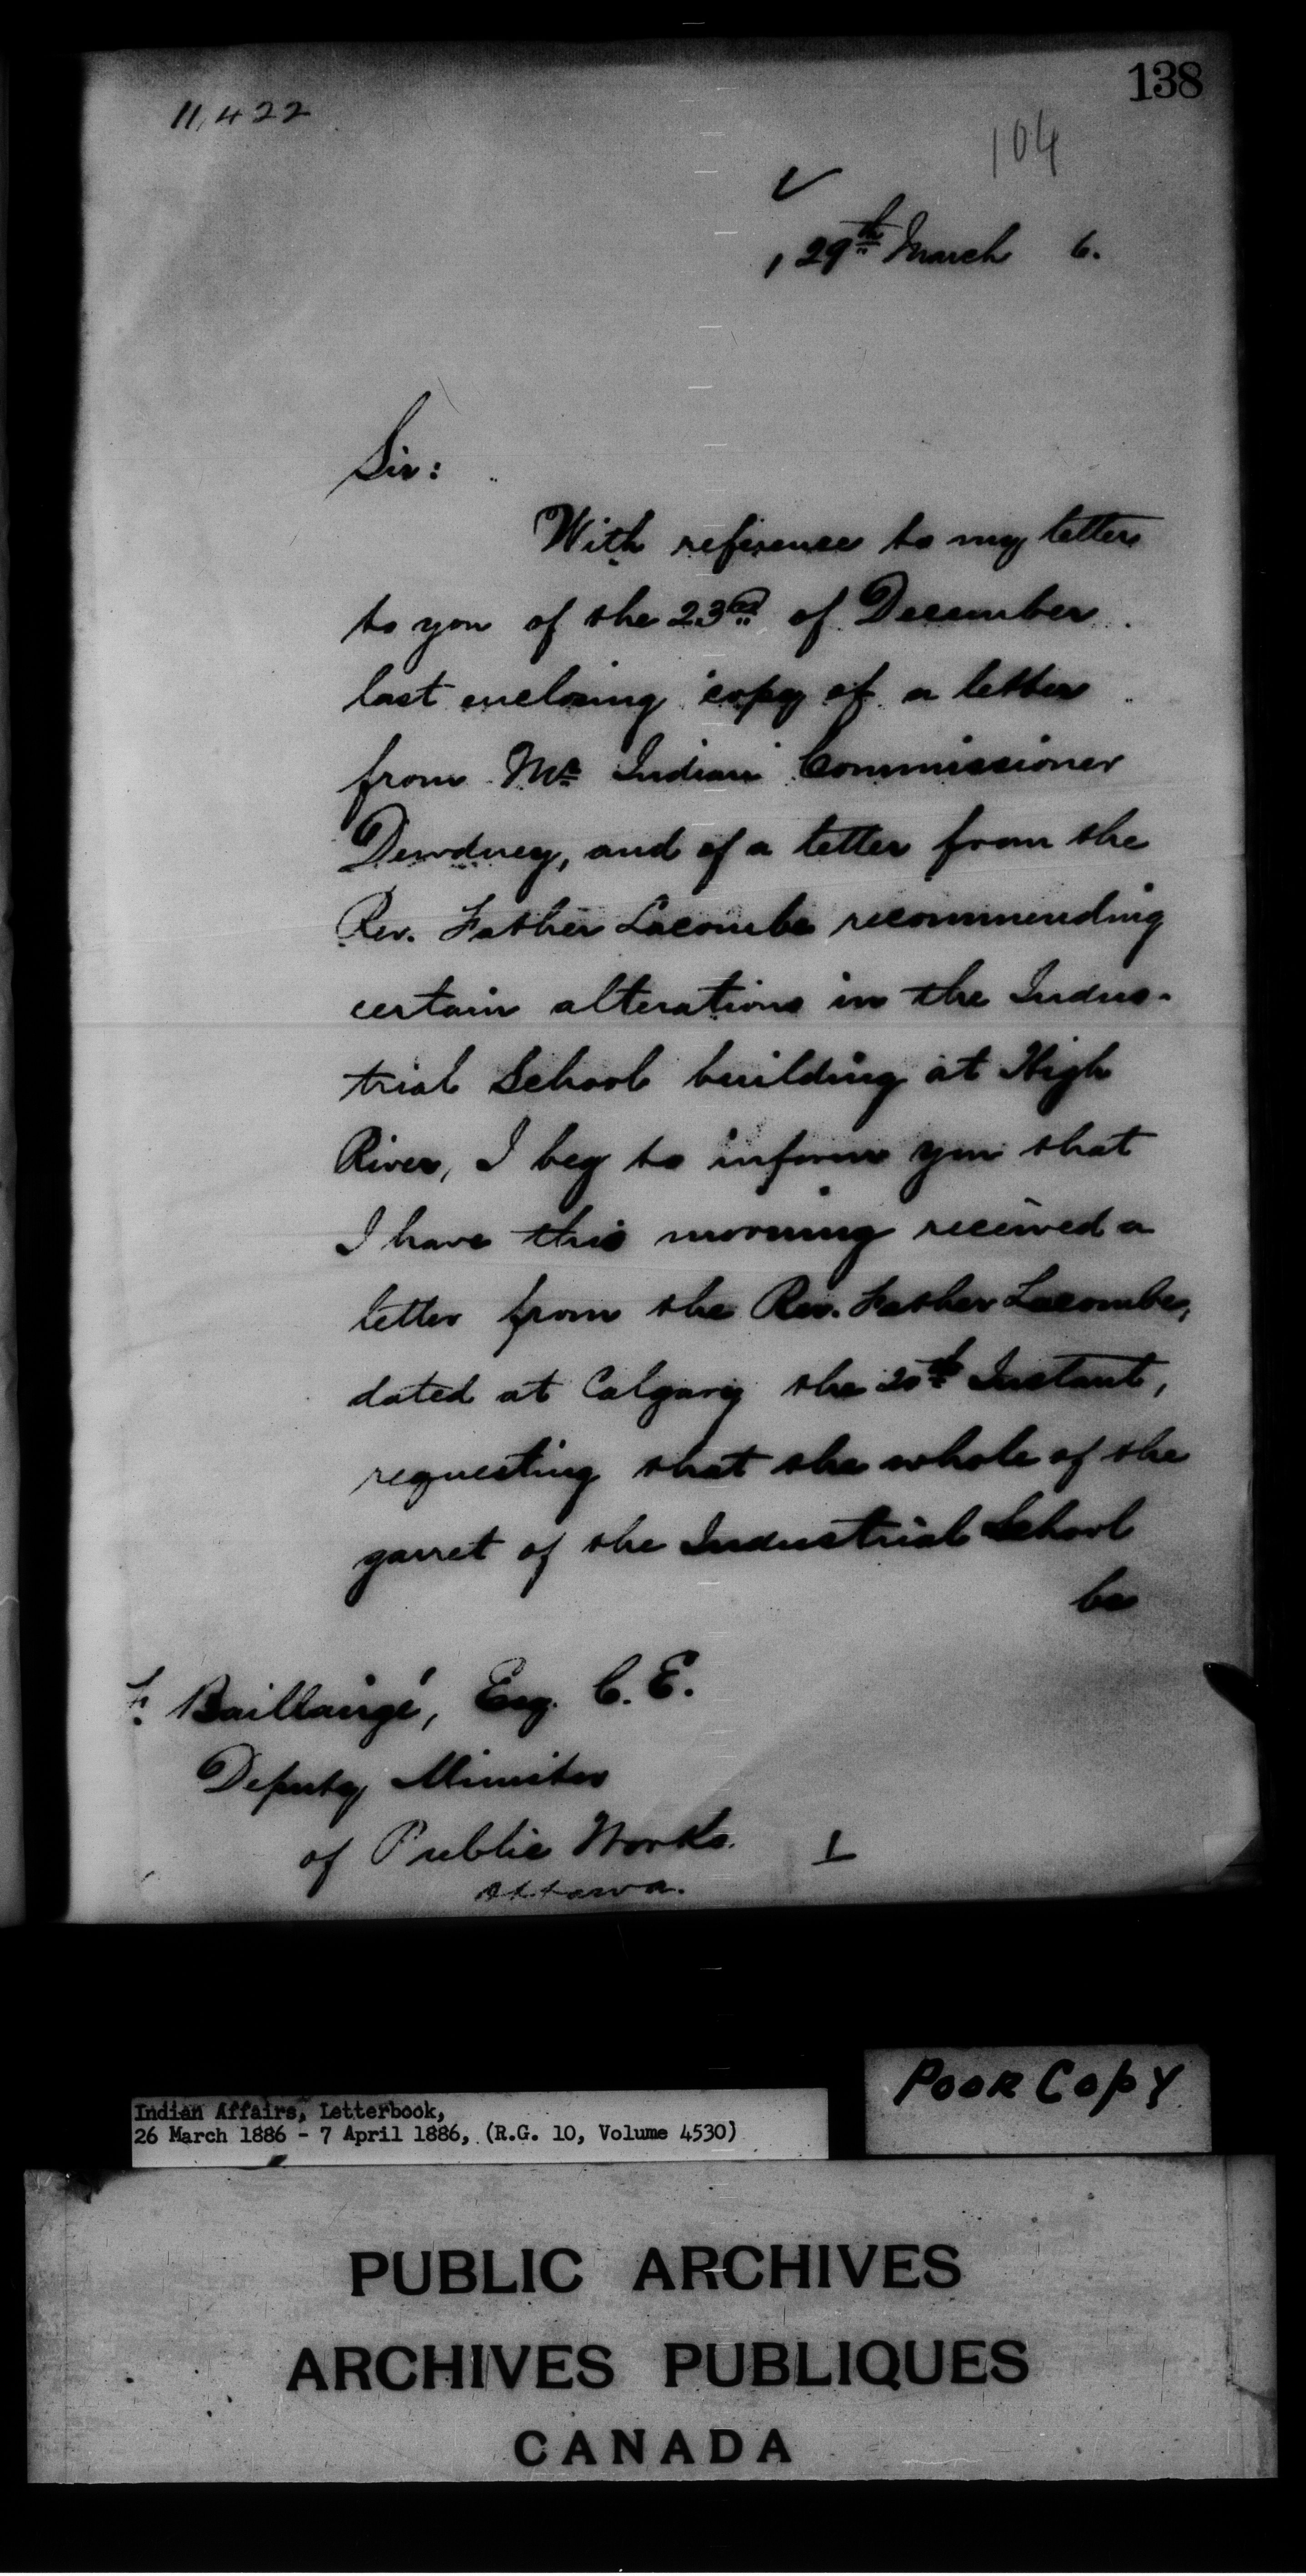 138
11,422
104
, 29th March 6.
Sir:
With reference to my letter
to you of the 23rd of December
last enclosing copy of a letter
from Mr Indian Commissioner
Dewdney, and of a letter from the
Rev. Father Lacombe recommending
certain alterations in the Indus-
trial School building at High
River, I beg to inform you that
I have this morning received a
letter from the Rev. Father Lacombe,
dated at Calgary the 20th Instant,
requesting that the whole of the
garret of the Industrial School
be
F. Baillairgé, Esq. C. E.
Deputy Minister
of Public Works.
Ottawa.
Poor Copy
Indian Affairs, Letterbook,
26 March 1886 - 7 April 1886, (R.G. 10, Volume 4530)
PUBLIC ARCHIVES
ARCHIVES PUBLIQUES
CANADA